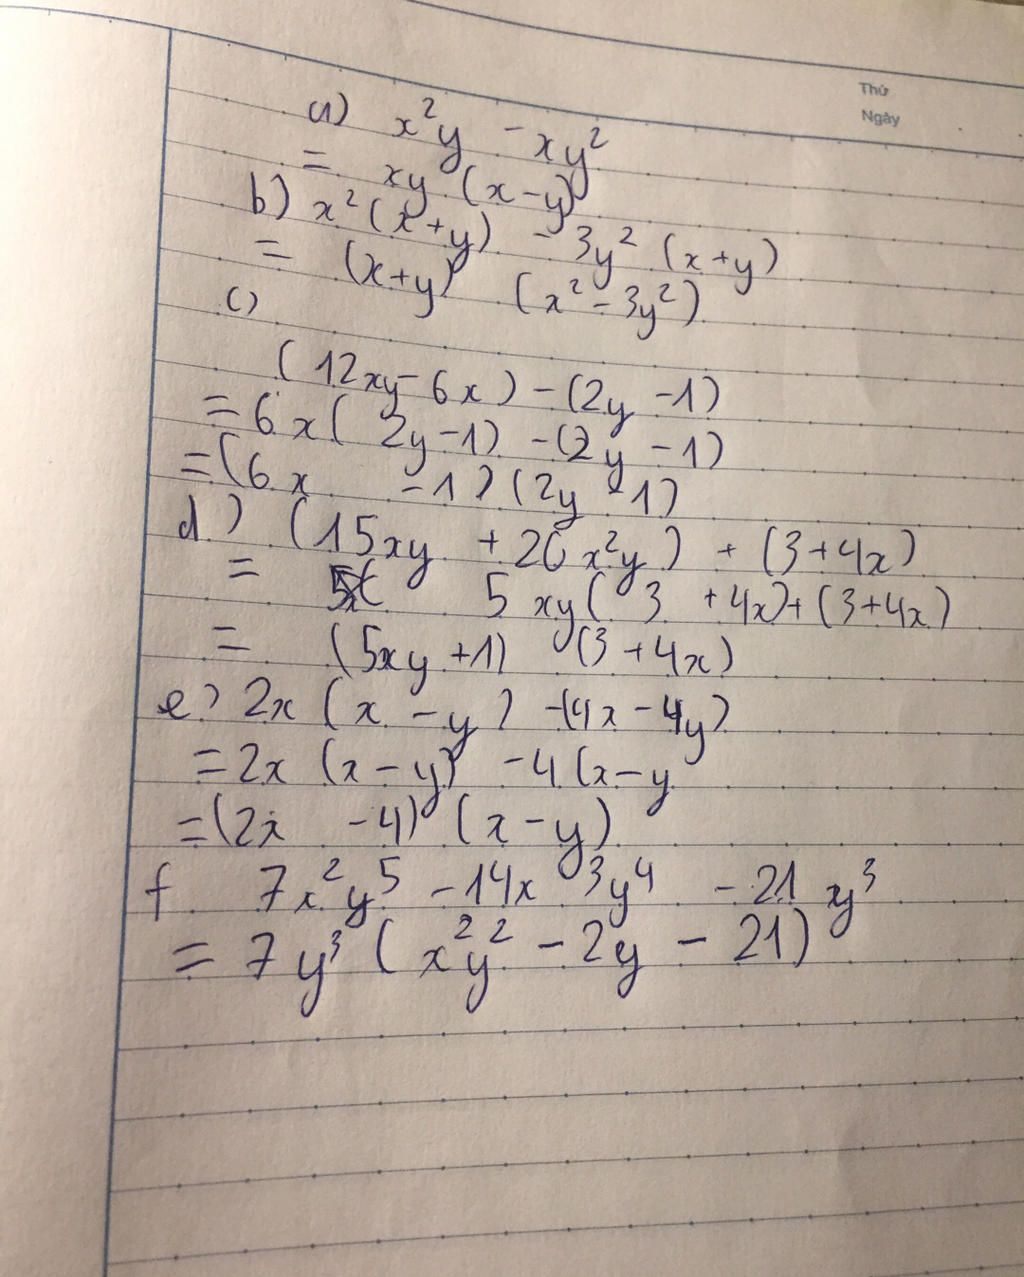 Thứ
Ngày
a) x²y - xy²
= xy (x-y)
b) x²(x+y) - 3y² (x+y)
= (x+y) (x²-3y²)
c)
(12xy-6x) - (2y -1)
= 6x( 2y-1) - (2y -1)
= (6x -1) (2y -1)
d) (15xy + 20x²y) + (3+4x)
= 5xy( 3 +4x)+(3+4x)
= (5xy+1) (3+4x)
e) 2x (x-y) -(4x-4y)
= 2x (x-y) -4 (x-y
= (2x -4) (x-y)
f 7x²y⁵ - 14x³y⁴ - 21 xy³
= 7y³ (x²y² - 2y - 21)